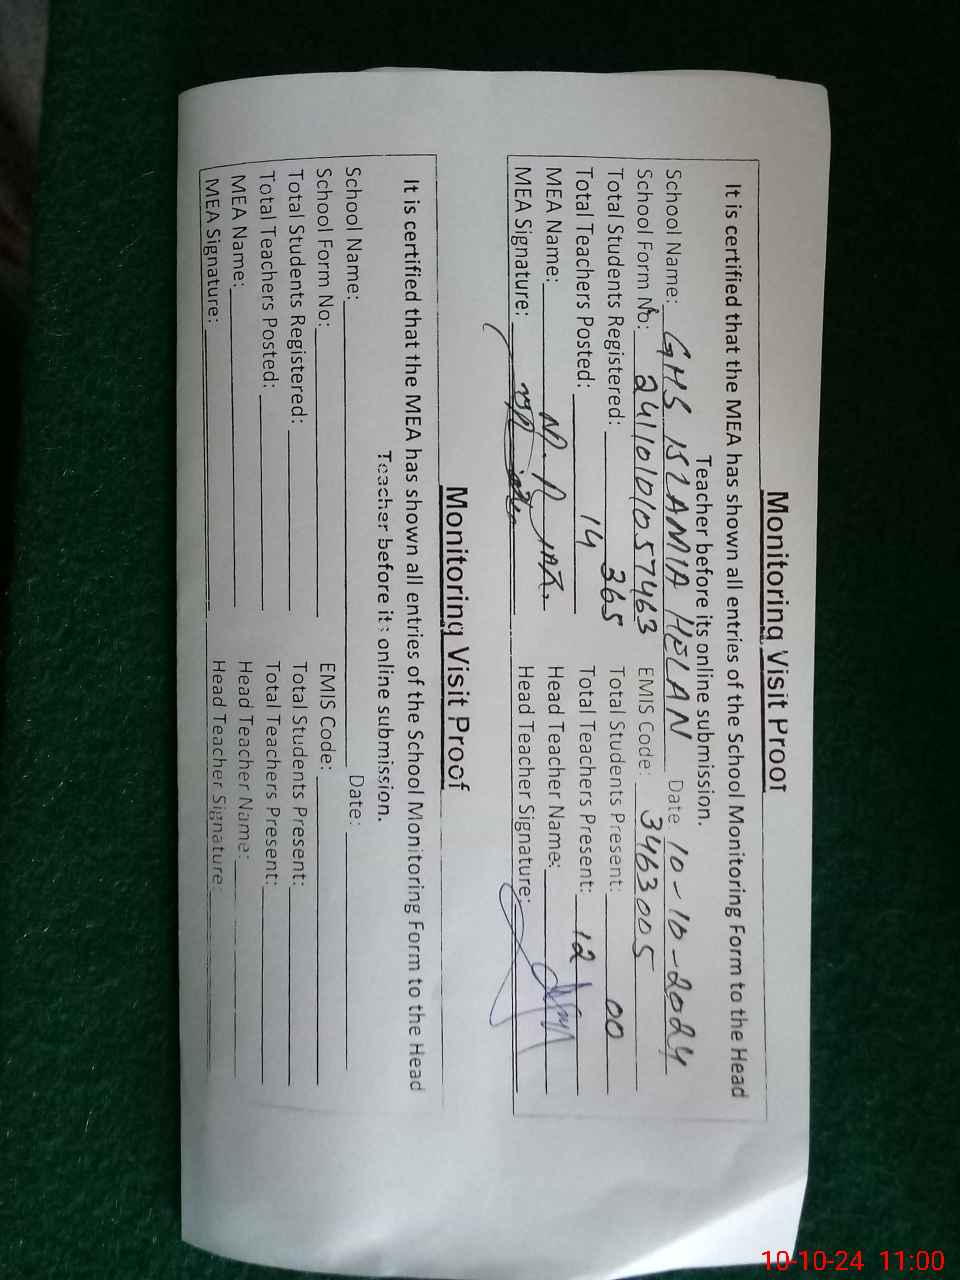 Monitoring Visit Proof
It is certified that the MEA has shown all entries of the School Monitoring Form to the Head
Teacher before its online submission.
School Name: GHS ISLAMIA HELAN Date 10-10-2024
School Form No: 241010105 7463 EMIS Code: 3463005
Total Students Registered: 365 Total Students Present: 00
Total Teachers Posted: 14 Total Teachers Present: 12
MEA Name: Head Teacher Name:
MEA Signature: Head Teacher Signature:
Monitoring Visit Proof
It is certified that the MEA has shown all entries of the School Monitoring Form to the Head
Teacher before its online submission.
School Name: Date:
School Form No: EMIS Code:
Total Students Registered: Total Students Present:
Total Teachers Posted: Total Teachers Present:
MEA Name: Head Teacher Name:
MEA Signature: Head Teacher Signature:
10-10-24 11:00